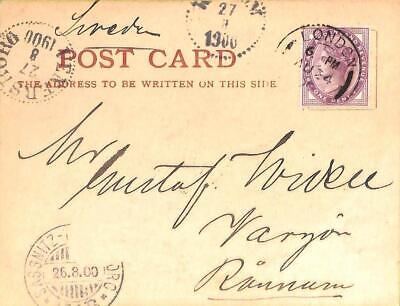 Sweden
27
8
1900
27
8
1900
LONDON
6 PM
AU 24
POST CARD
THE ADDRESS TO BE WRITTEN ON THIS SIDE.
Mr
Gustaf Widell
Vargön
Rånnum
SASSNITZ-
26.8.00